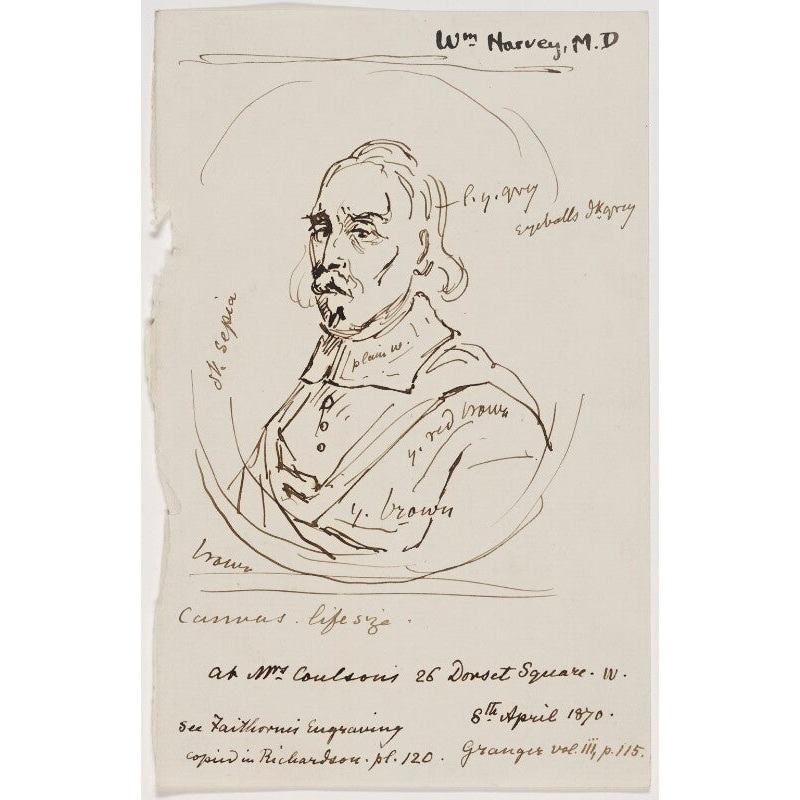 Wm Harvey, M.D
l. y. grey
Eyeballs dk grey
dk. sepia
plain w.
y. red brown
y. brown
brown
Canvas. life size.
at Mrs Coulson's 26 Dorset Square. W.
8th April 1870.
see Faithorne's Engraving
copied in Richardson. pl. 120.
Granger vol. III, p. 115.